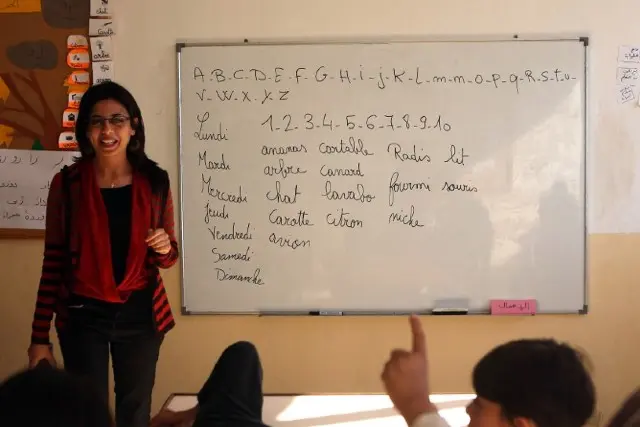 A-B-C-D-E-F-G-H-i-j-K-L-m-m-o-p-q-R-S-t-u-
v-W-X-y-Z
Lundi 1-2-3-4-5-6-7-8-9-10
Mardi ananas cartable Radis lit
Mercredi arbre canard
Jeudi chat lavabo fourmi souris
Vendredi carotte citron niche
Samedi avion
Dimanche